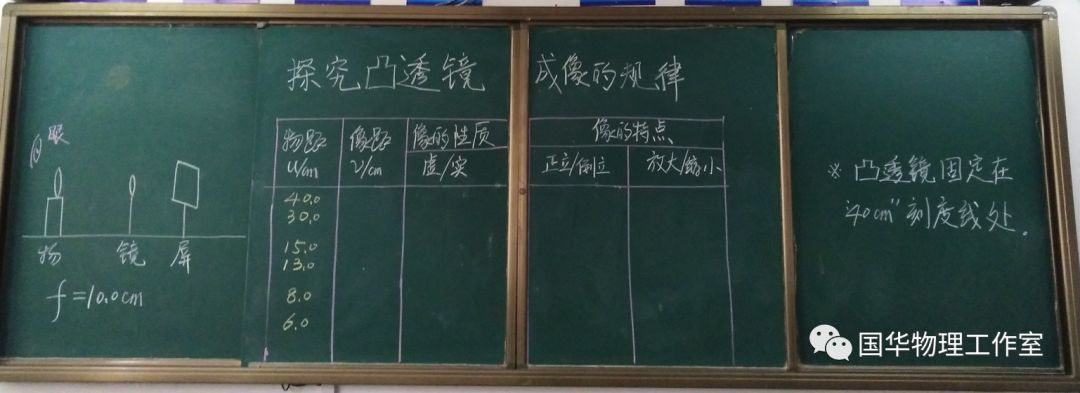 探究凸透镜 成像的规律
眼
物 镜 屏
f=10.0cm
物距 像距 像的性质 像的特点
u/cm v/cm 虚/实 正立/倒立 放大/缩小
40.0
30.0
15.0
13.0
8.0
6.0
※ 凸透镜固定在
"40cm"刻度线处.
国华物理工作室